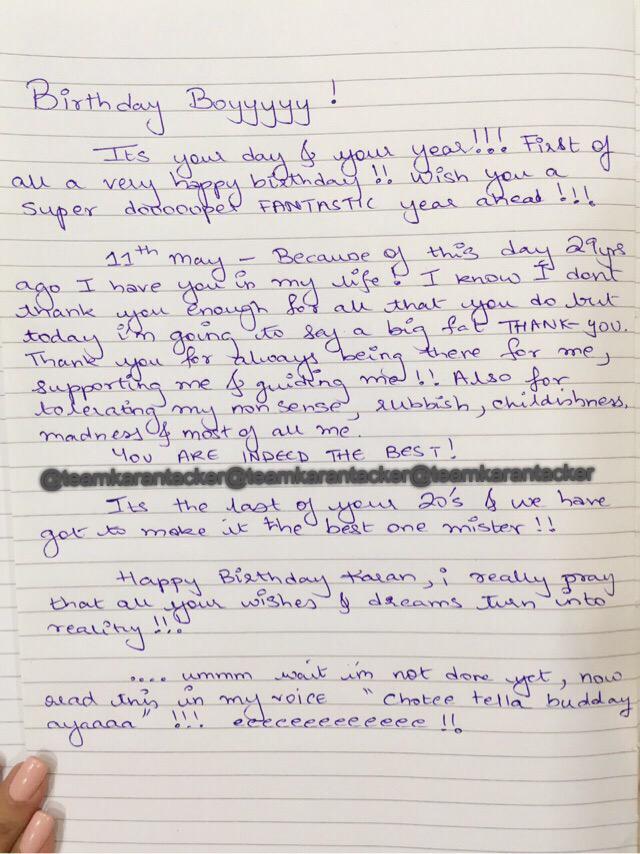 Birthday Boyyyyy !
Its your day & your year!!! First of
all a very happy birthday !! Wish you a
super doooouper FANTASTIC year ahead !!!
11th may - Because of this day 29yrs
ago I have you in my life! I know I dont
thank you enough for all that you do but
today i'm going to say a big fat THANK YOU.
Thank you for always being there for me,
supporting me & guiding me !! Also for
tolerating my non sense, rubbish, childishness,
madness & most of all me.
YOU ARE INDEED THE BEST!
@teamkarantacker@teamkarantacker@teamkarantacker
Its the last of your 20's & we have
got to make it the best one mister !!
Happy Birthday Karan, i really pray
that all your wishes & dreams turn into
reality !!!
.... ummm wait im not done yet, now
read this in my voice " Chotee tella budday
ayaaaa" !!! eeeeeeeeeeeee !!